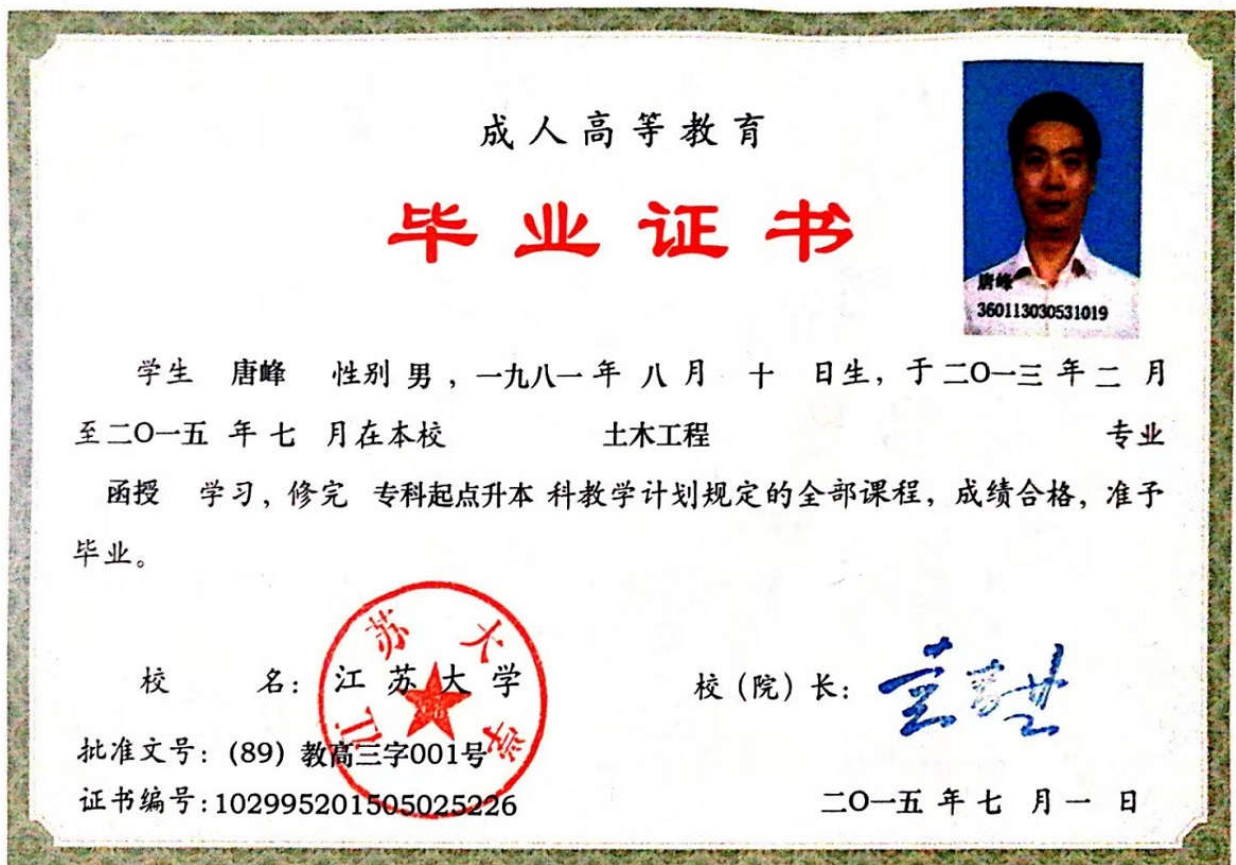 成人高等教育
毕业证书
唐峰
360113030531019
学生 唐峰 性别 男 ，一九八一 年 八 月 十 日生，于 二〇一三 年 二 月
至 二〇一五 年 七 月在本校 土木工程 专业
函授 学习，修完 专科起点升本 科教学计划规定的全部课程，成绩合格，准予
毕业。
江苏大学
校 名：江苏大学
校（院）长：
批准文号：(89) 教高三字001号
证书编号：102995201505025226
二〇一五 年 七 月 一 日